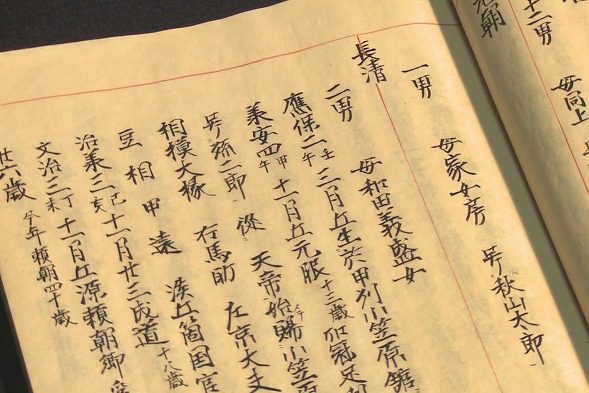 十二男 母同上
一男 母家女房 号秋山太郎
長清
二男 母和田義盛女
應保二壬午三月五生於甲州小笠原舘
義安四甲午十一月五元服十三歳加冠足利
号孫二郎 從 天帝始賜小笠原
相模大掾 右馬助 左京大夫
豆 相 甲 遠 淡五箇国官
治義三己亥十一月廿三成道十八歳
文治三丁未十一月五源頼朝卿
廿六歳 今年頼朝四十歳